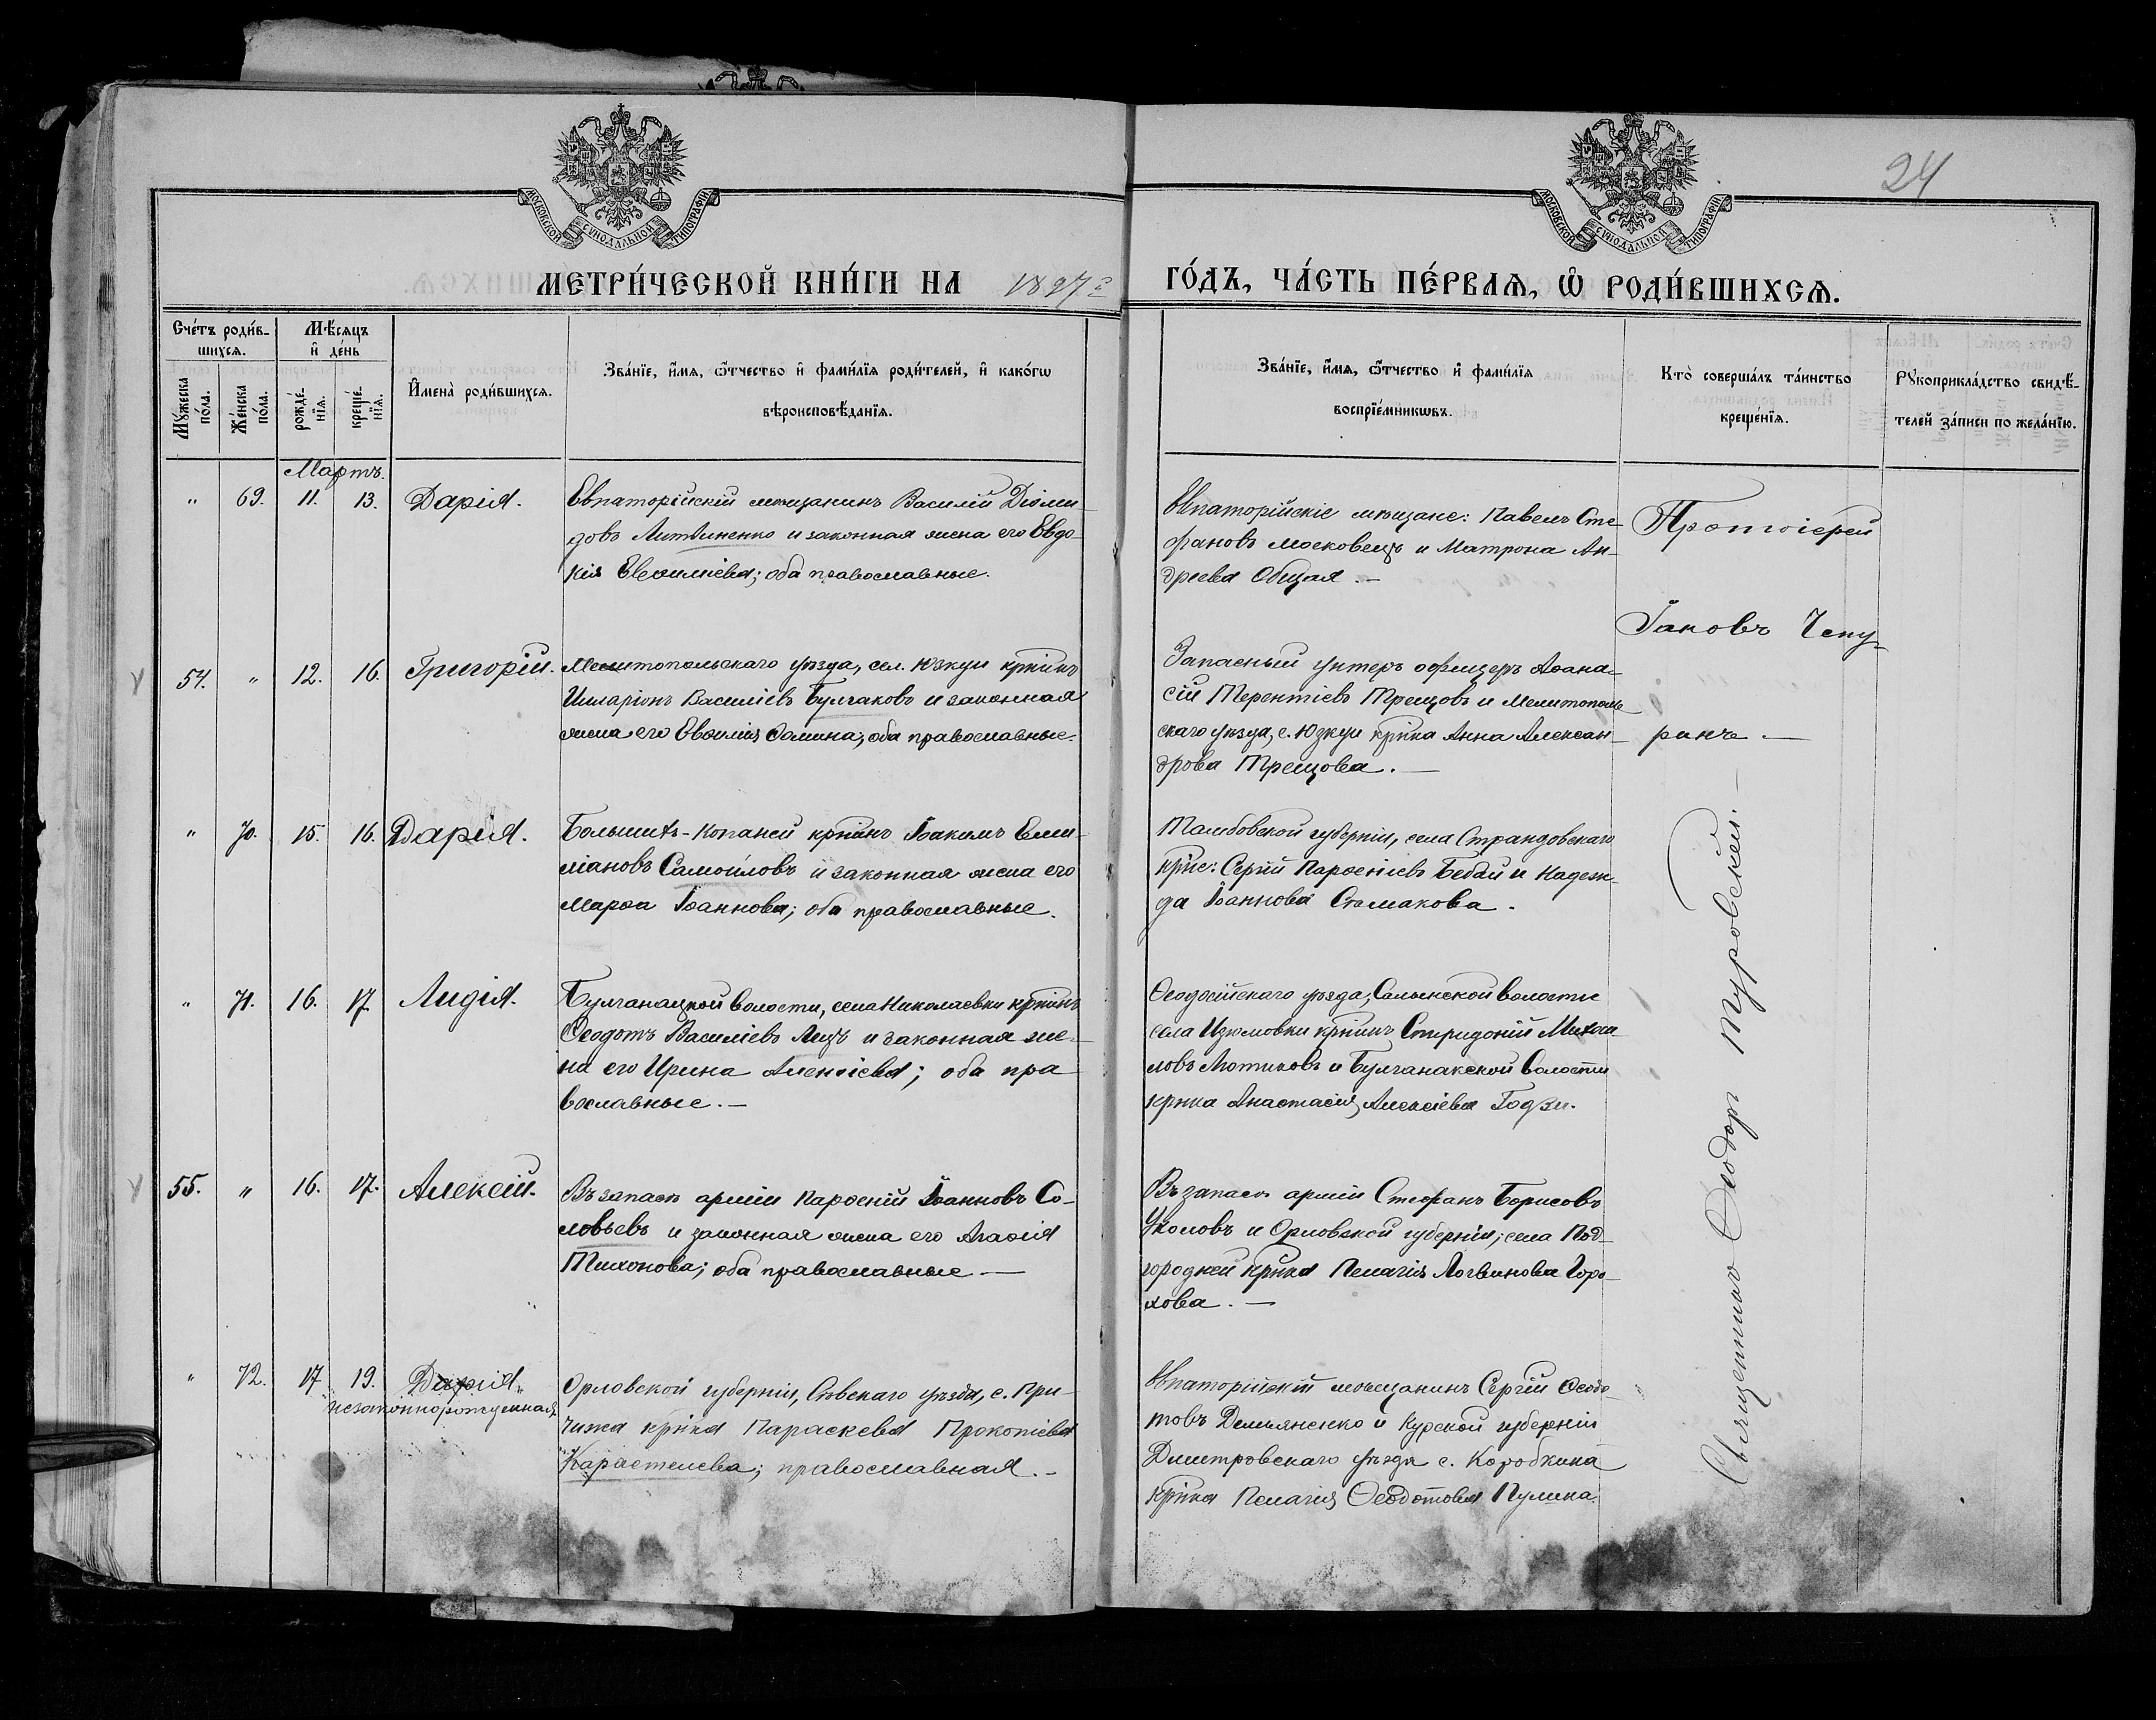 24
МОСКОВСКОЙ СѴНОДАЛЬНОЙ ТИПОГРАФІИ
МОСКОВСКОЙ СѴНОДАЛЬНОЙ ТИПОГРАФІИ
МЕТРИ́ЧЕСКОЙ КНИ́ГИ НА 1897 г
ГО́ДЪ, ЧА́СТЬ ПЕ́РВАѦ, Ѡ҆ РОДИ́ВШИХСѦ.
Сче́тъ роди́в-
шихсѧ.
Мѣ́сѧцъ
и҆ де́нь
Мꙋ́жеска по́ла.
Же́нска по́ла.
рожде́-
нїѧ.
креще́-
нїѧ.
И҆мена̀ роди́вшихсѧ.
Зва́нїе, и҆́мѧ, ѻ҆́тчество и҆ фами́лїѧ роди́телей, и҆ како́гѡ
вѣроисповѣ́данїѧ.
Зва́нїе, и҆́мѧ, ѻ҆́тчество и҆ фами́лїѧ
воспрїе́мникѡвъ.
Кто̀ соверша́лъ та́инство
креще́нїѧ.
Рꙋкоприкла́дство свидѣ́-
телей за́писи по жела́нїю.
Мартъ.
" 69. 11. 13. Дарія.
Евпаторійскій мѣщанинъ Василій Діоми-
довъ Литвиненко и законная жена его Евдо-
кія Евѳиміева; оба православные.
Евпаторійскіе мѣщане: Павелъ Сте-
фановъ Московецъ и Матрона Ан-
дреева Общая.—
Протоіерей
Іаковъ Чепу-
ринъ.—
54. " 12. 16. Григорій.
Мелитопольскаго уѣзда, сел. Юзкуи кр-нинъ
Илларіонъ Василіевъ Булгаковъ и законная
жена его Евѳимія Ѳомина; оба православные.
Запасный унтеръ офицеръ Аѳана-
сій Терентіевъ Трещовъ и Мелитополь-
скаго уѣзда, с. Юзкуи кр-нка Анна Алексан-
дрова Трещова.—
" 70. 15. 16. Дарія.
Большихъ-Копаней кр-нинъ Іоакимъ Еми-
ліановъ Самойловъ и законная жена его
Марѳа Іоаннова; оба православные.
Тамбовской губерніи, села
кр-не: Сергій Парѳеніевъ и Надеж-
да Іоаннова
" 71. 16. 17. Лидія.
Булганацкой волости, села Николаевки кр-нинъ
Ѳеодотъ Василіевъ и законная же-
на его Ирина Алексіева; оба пра
вославные.—
Ѳеодосійскаго уѣзда, Салынской волости
села Изюмовки кр-нинъ Спиридоній Михаи-
ловъ Лютиковъ и Булганакской волости
кр-нка Анастасія Алексіева
55. " 16. 17. Алексій.
Въ запасѣ арміи Парѳеній Іоанновъ Со-
ловьевъ и законная жена его Агаѳія
Тихонова; оба православные—
Въ запасѣ арміи Стефанъ Борисовъ
Уколовъ и Орловской губерніи, села Под-
городней кр-нка Пелагія Логвинова Горо-
хова.—
" 72. 17 19. Дарія"
незаконнорожденная"
Орловской губерніи, Сѣвскаго уѣзда, с. При-
чижа кр-нка Параскева Прокопіева
Карастелева; православная.—
Евпаторійскій мѣщанинъ Сергій Ѳеодо-
товъ Демьяненко и Курской губерніи
Дмитровскаго уѣзда с. Коробкина
кр-нка Пелагія Ѳеодотова Пулина.
Священникъ Ѳеодоръ Туровскій.—